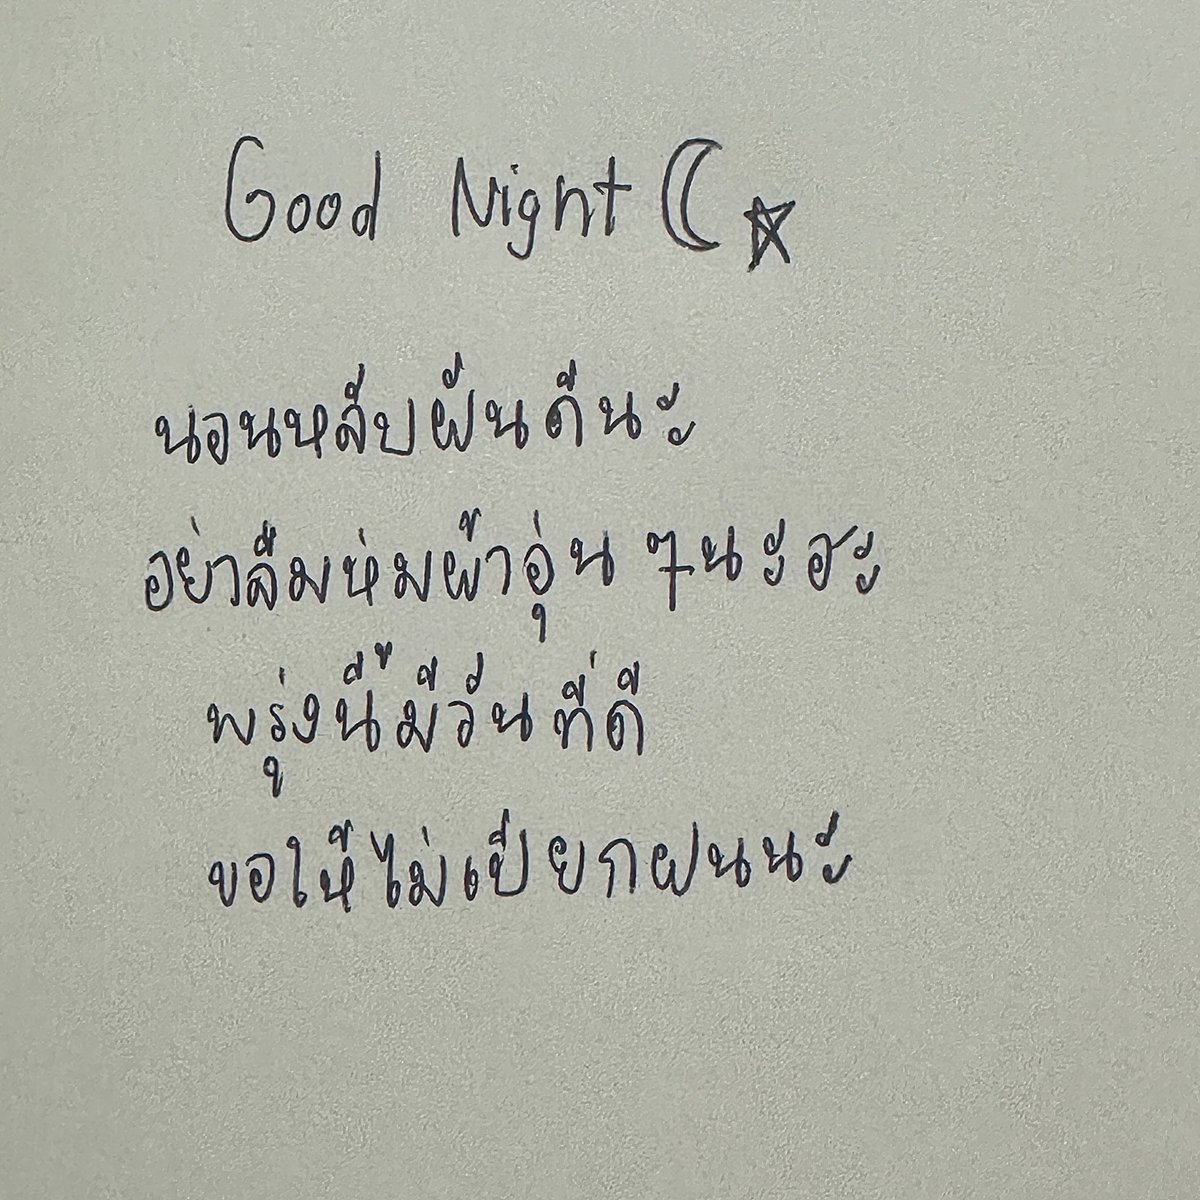 Good Night
นอนหลับฝันดีนะ
อย่าลืมห่มผ้าอุ่น ๆนะฮะ
พรุ่งนี้มีวันที่ดี
ขอให้ไม่เปียกฝนนะ